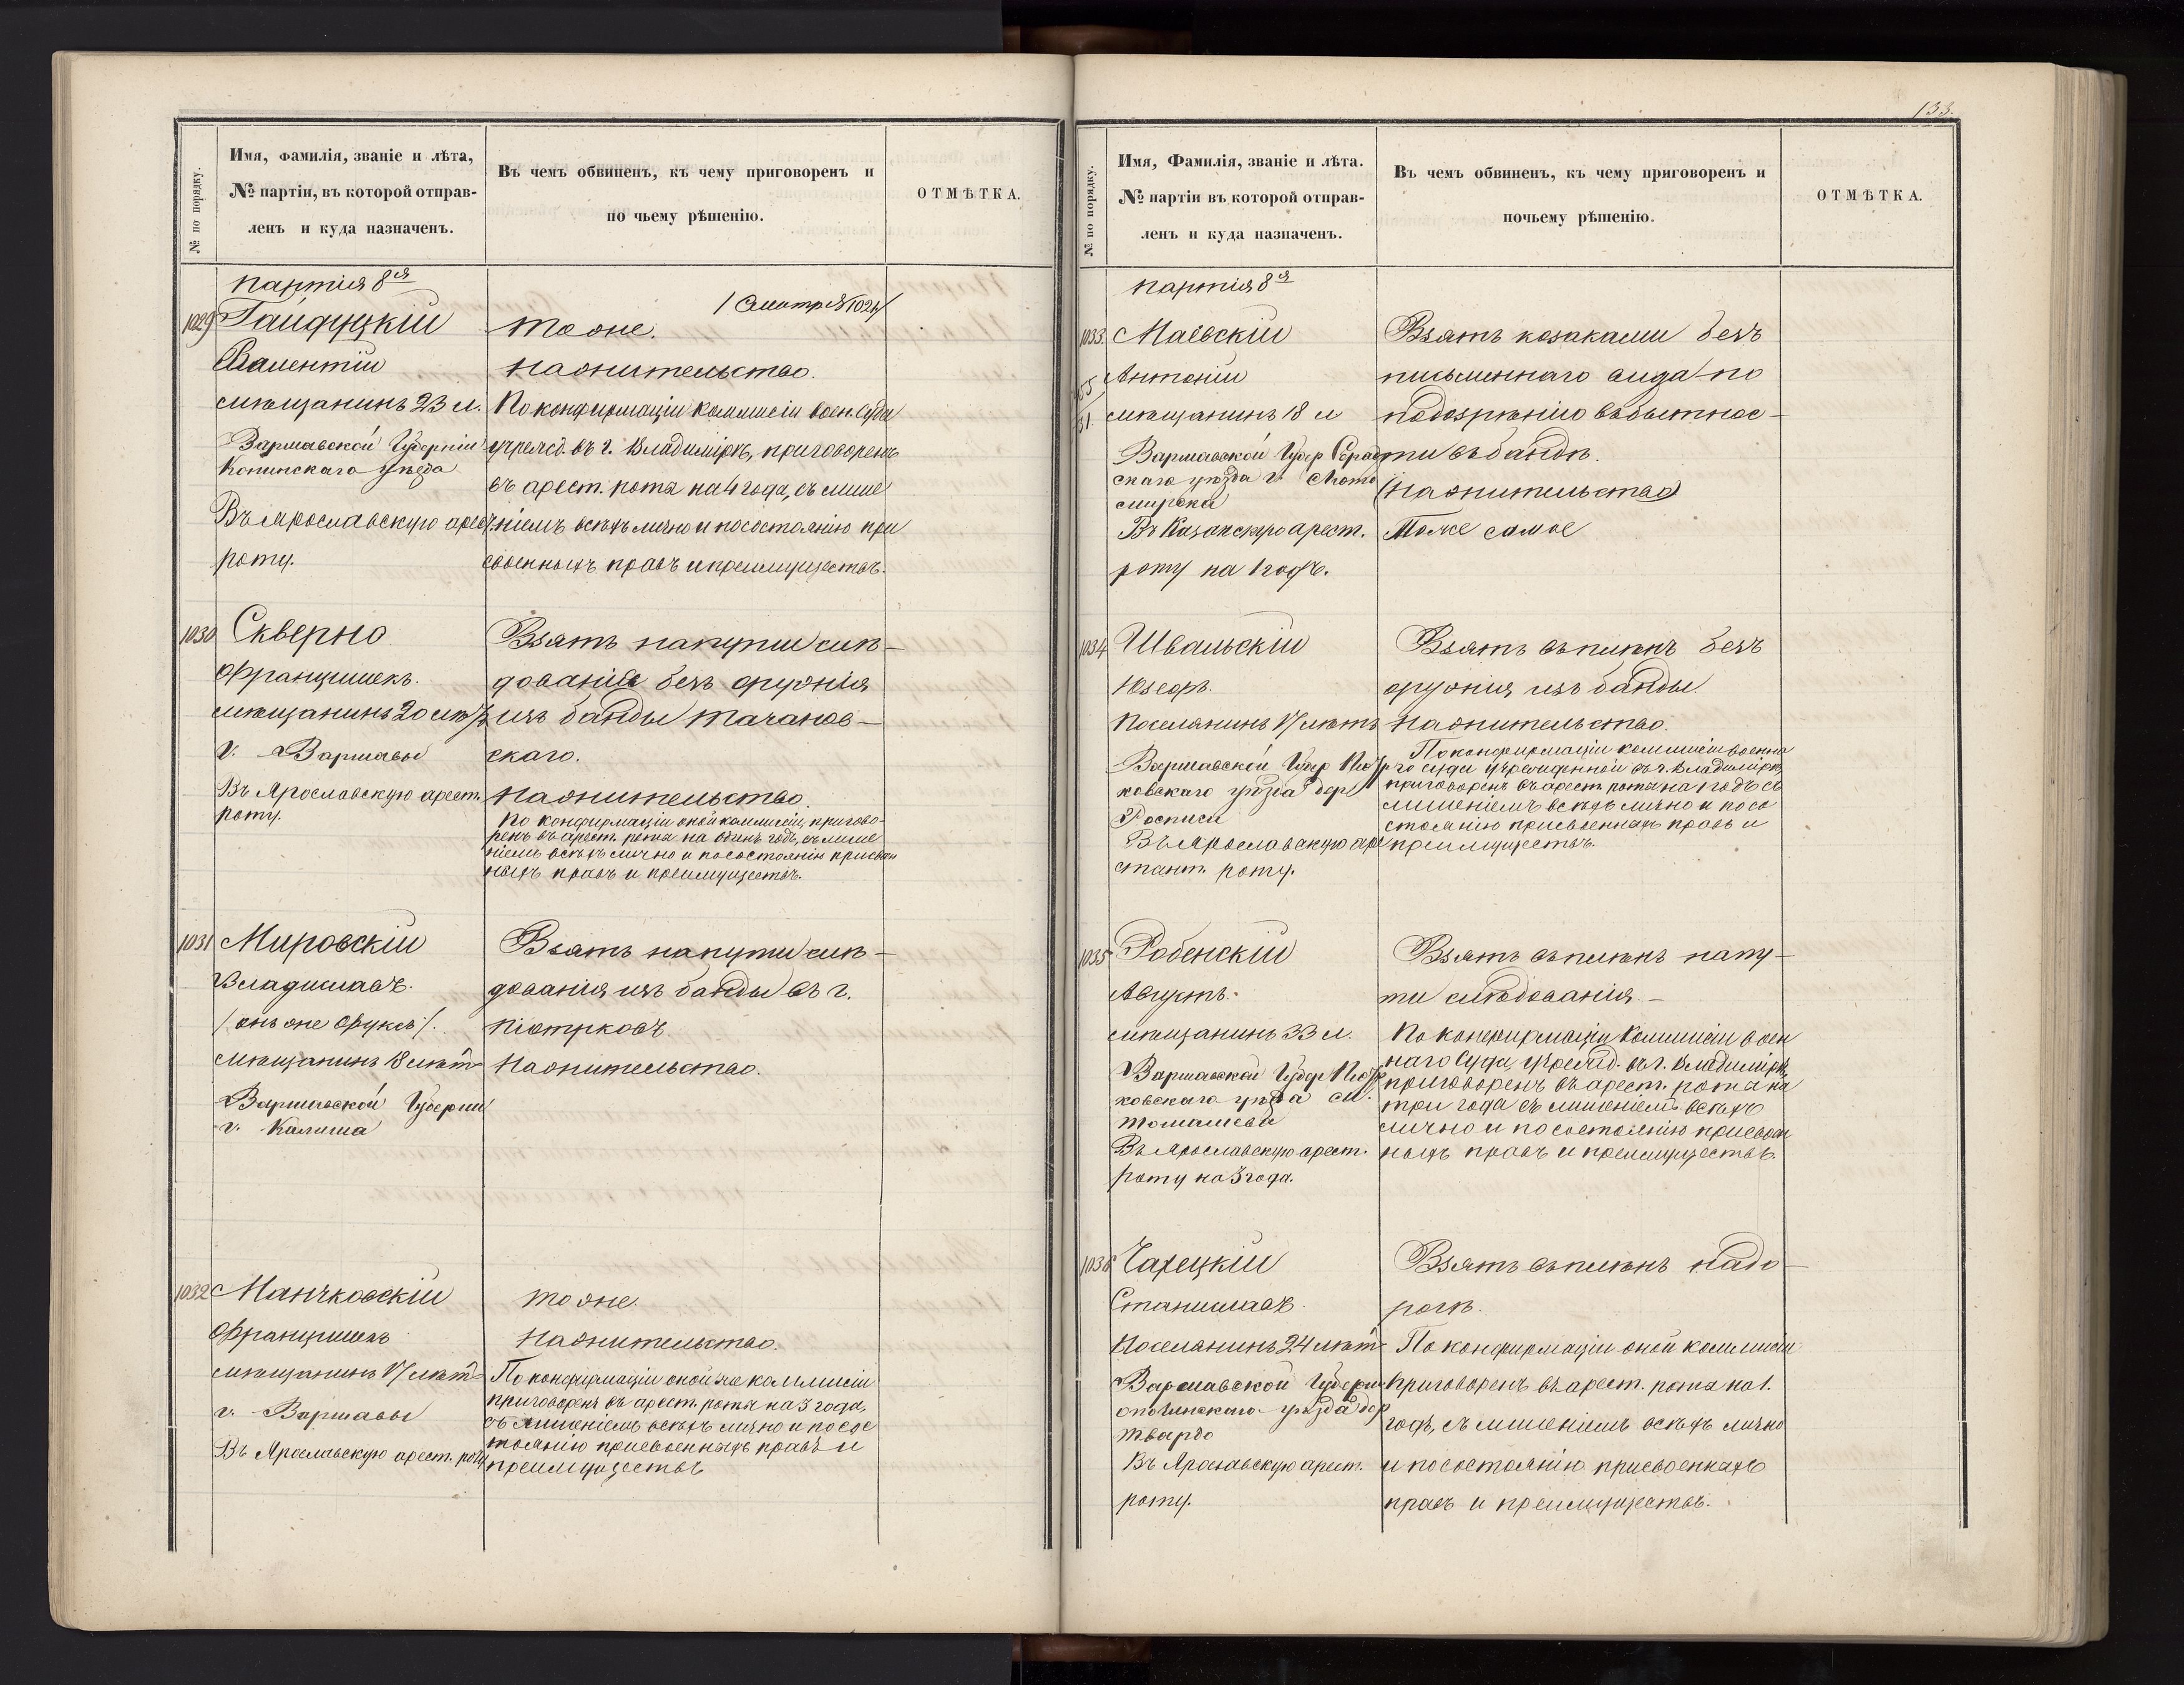 133.
№ по порядку.
Имя, Фамилія, званіе и лѣта,
№ партіи, въ которой отправ-
ленъ и куда назначенъ.
Въ чемъ обвиненъ, къ чему приговоренъ и
по чьему рѣшенію.
ОТМѢТКА.
партія 8ая
1029 Гайдуцкій
Валентій
мѣщанинъ 23 л.
Варшавской Губерніи
Конинскаго уѣзда
Въ Ярославскую арест.
роту.
/Смотр. № 1024/
тоже.
на жительство.
По конфирмаціи коммисіи воен. Суда
учрежд. въ г. Владимірѣ, приговоренъ
въ арест. роты на 4 года, съ лише
ніемъ всѣхъ лично и по состоянію при
своенныхъ правъ и преимуществъ.
1030 Скверно
Францишекъ.
мѣщанинъ 20 лѣтъ
г. Варшавы
Въ Ярославскую арест.
роту.
Взятъ на пути слѣ-
дованія безъ оружія
изъ банды Тачанов-
скаго.
на жительство.
По конфирмаціи оной коммисіи, пригово-
ренъ въ арест. роты на одинъ годъ, съ лише
ніемъ всѣхъ лично и по состоянію присвоен
ныхъ правъ и преимуществъ.
1031 Мировскій
Владиславъ.
/онъ же Фуксъ/.
мѣщанинъ 18 лѣтъ
Варшавской Губерніи
г. Калиша
Взятъ на пути слѣ-
дованія изъ банды въ г.
Піотрковъ.
на жительство.
1032 Манчковскій
Францишекъ
мѣщанинъ 17 лѣтъ
г. Варшавы
Въ Ярославскую арест. роту
тоже.
на жительство.
По конфирмаціи оной же коммисіи
приговоренъ въ арест. роты на 3 года,
съ лишеніемъ всѣхъ лично и по сос
тоянію присвоенныхъ правъ и
преимуществъ
№ по порядку.
Имя, Фамилія, званіе и лѣта.
№ партіи въ которой отправ-
ленъ и куда назначенъ.
Въ чемъ обвиненъ, къ чему приговоренъ и
почьему рѣшенію.
ОТМѢТКА.
партія 8ая
1033. Маевскій
Антоній
мѣщанинъ 18 л
Варшавской Губер Серад
скаго уѣзда г.
Въ Казанскую арест.
роту на 1 годъ.
Взятъ козаками безъ
письменнаго вида по
подозрѣнію въ бытнос-
ти въ бандѣ.
(на жительство)
Тоже самое
1034 Швальскій
Юзефъ.
Поселянинъ 17 лѣтъ
Варшавской Губер Піотр
ковскаго уѣзда дер
Росписи
Въ Ярославскую аре
стант. роту.
Взятъ въ плѣнъ безъ
оружія изъ банды.
на жительство.
По конфирмаціи коммисіи военна
го суда учрежденной въ г. Владимірѣ,
приговоренъ въ арест. роты на 1 годъ съ
лишеніемъ всѣхъ лично и по со
стоянію присвоенныхъ правъ и
преимуществъ.
1035 Робенскій
Августъ.
мѣщанинъ 33 л.
Варшавской Губер Піотр
ковскаго уѣзда м.
Томашева
Въ Ярославскую арест.
роту на 3 года.
Взятъ въ плѣнъ на пу-
ти слѣдованія.-
По конфирмаціи Коммисіи воен
наго Суда, учрежд. въ г. Владимірѣ,
приговоренъ въ арест. роты на
три года съ лишеніемъ всѣхъ
лично и по состоянію присвоен
ныхъ правъ и преимуществъ.
1036 Чарецкій
Станиславъ.
Поселянинъ 24 лѣтъ
Варшавской Губерніи
опочинскаго уѣзда дер
Твардо
Въ Ярославскую арест.
роту.
Взятъ въ плѣнъ на до-
рогѣ.
По конфирмаціи оной коммисіи
приговоренъ въ арест. роты на 1.
годъ, съ лишеніемъ всѣхъ лично
и по состоянію присвоенныхъ
правъ и преимуществъ.